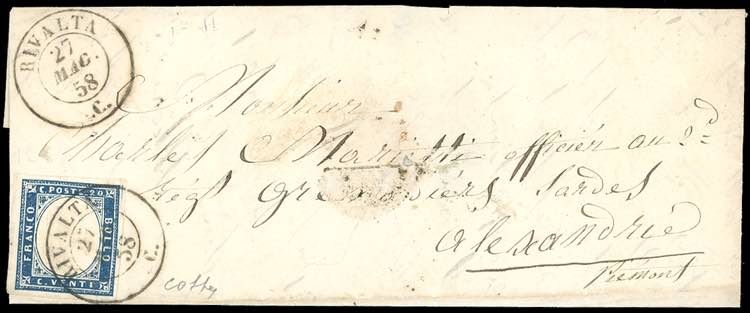 RIVALTA
27
MAG.
58
.C.
Monsieur
Charles officier au 2d
Régt grenadiers Sardes
Alexandrie
Piémont
C. POSTE 20
FRANCO
BOLLO
C. VENTI
RIVALTA
27
58
C.